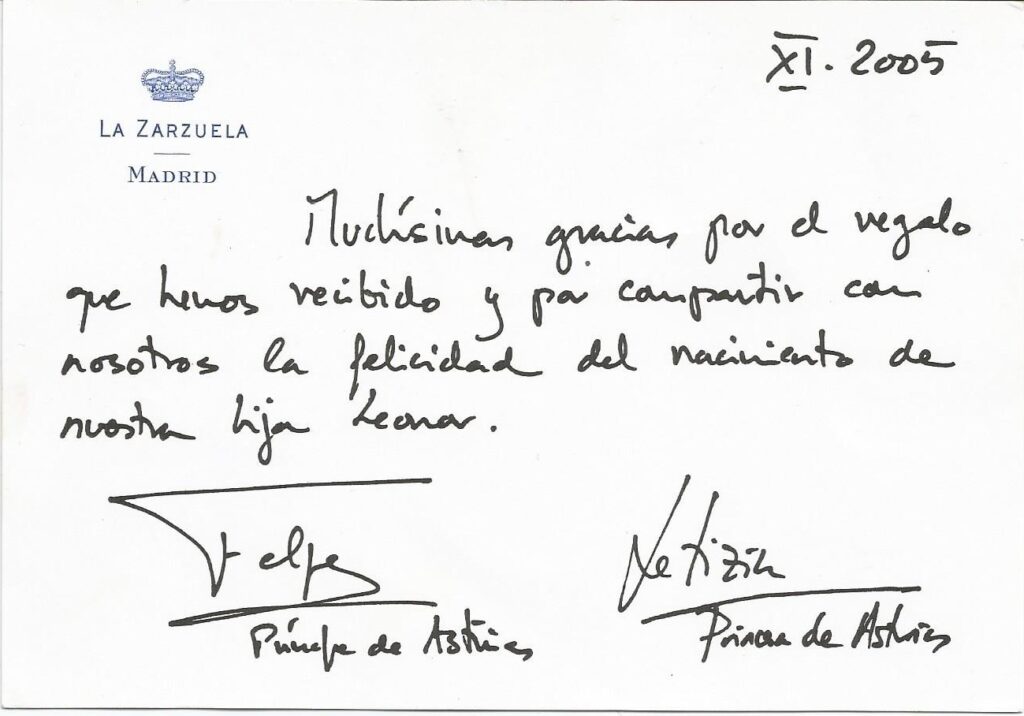 XI. 2005
LA ZARZUELA
MADRID
Muchísimas gracias por el regalo
que hemos recibido y por compartir con
nosotros la felicidad del nacimiento de
nuestra hija Leonor.
Felipe
Letizia
Príncipe de Asturias
Princesa de Asturias